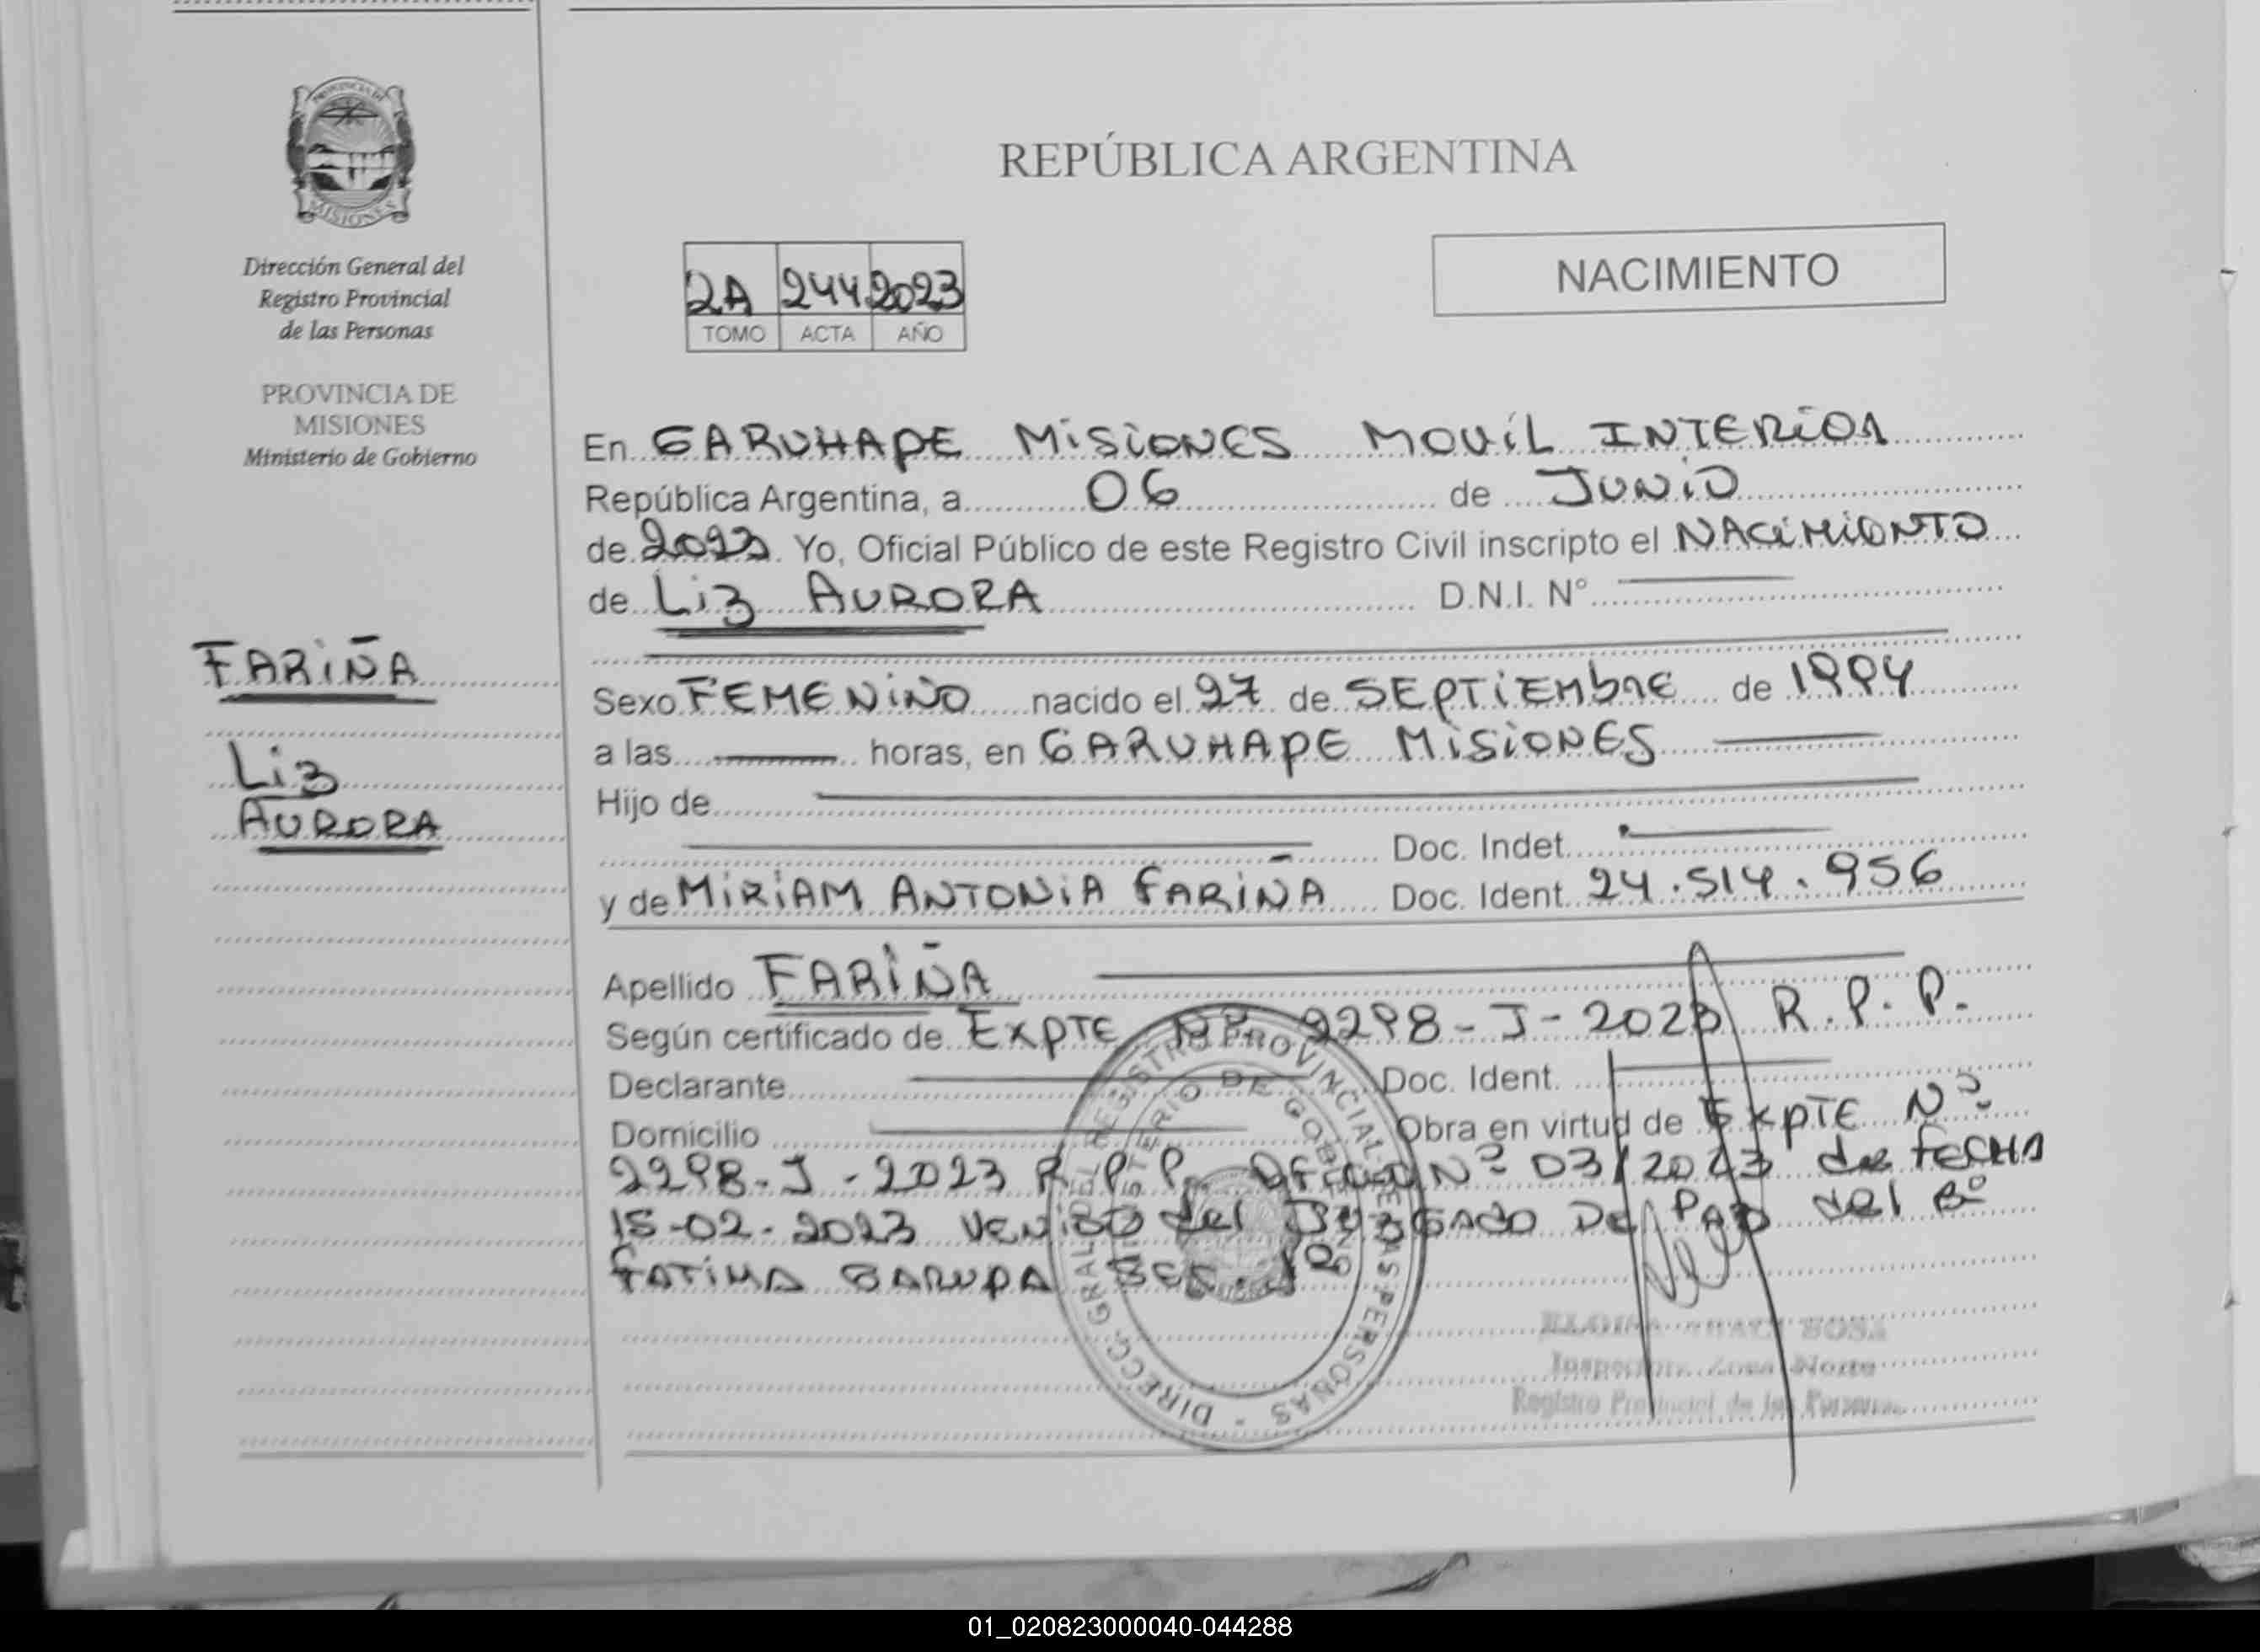 PROVINCIA DE
MISIONES
Dirección General del
Registro Provincial
de las Personas
PROVINCIA DE
MISIONES
Ministerio de Gobierno
FARIÑA
Liz
AURORA
REPÚBLICA ARGENTINA
NACIMIENTO
2A 244 2023
TOMO ACTA AÑO
En GARUHAPE MISIONES MOVIL INTERIOR
República Argentina, a 06 de JUNIO
de 2023. Yo, Oficial Público de este Registro Civil inscripto el NACIMIENTO
de Liz AURORA D.N.I. N°
Sexo FEMENINO nacido el 27 de SEPTIEMBRE de 1994
a las horas, en GARUHAPE MISIONES
Hijo de
Doc. Indet.
y de MIRIAM ANTONIA FARIÑA Doc. Ident. 24.514.956
Apellido FARIÑA
Según certificado de EXPTE Nº 2298-J-2023 R.P.P.
Declarante Doc. Ident.
Domicilio Obra en virtud de EXPTE Nº
2298-J-2023 R.P.P. OFICIO Nº 03/2023 de FECHA
15-02-2023 VENIDO del JUZGADO DE PAZ del Bº
FATIMA GARUPA SEC. 1º
DIRECC. GRAL. DEL REGISTRO PROVINCIAL DE LAS PERSONAS
MINISTERIO DE GOBIERNO
SOSA
Inspectora Zona Norte
Registro Provincial de las Personas
01_020823000040-044288